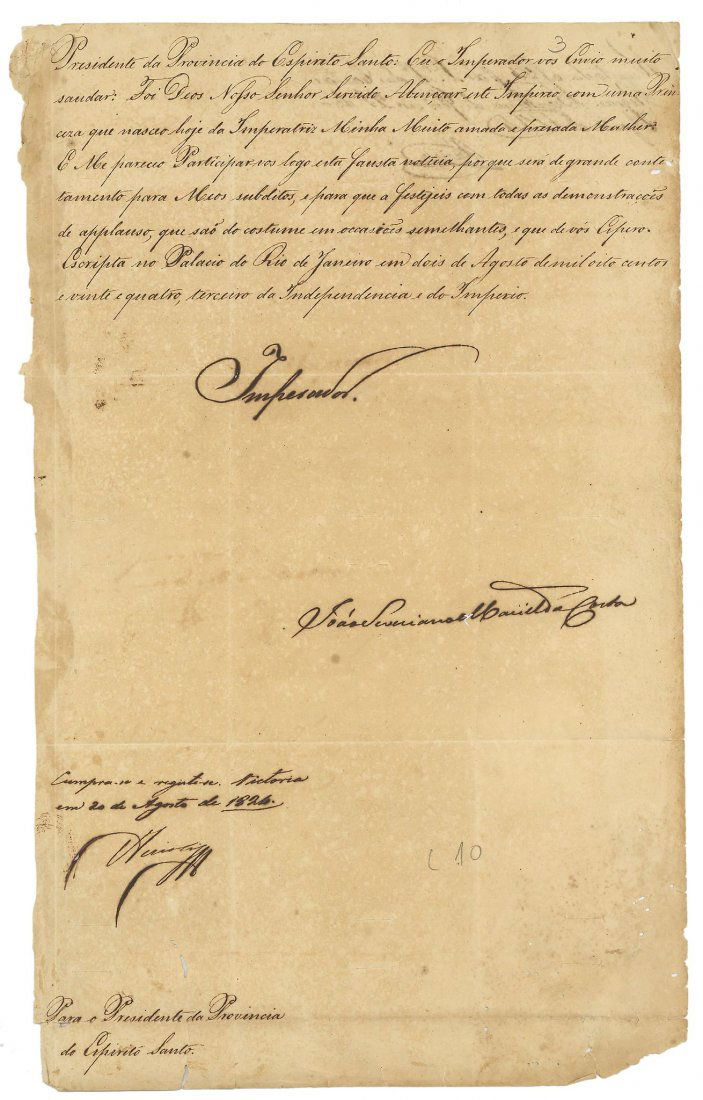 3
Presidente da Provincia do Espirito Santo: Eu o Imperador vos Envio muito
saudar: Foi Deos Nosso Senhor Servido Abençoar este Imperio com uma Prin
ceza que nasceo hoje da Imperatriz Minha Muito amada e prezada Mulher:
E Me pareceo Participar-vos logo esta fausta noticia, porque sera de grande conten
tamento para Meos subditos, e para que a festejeis com todas as demonstrações
de applauso, que saõ do costume em occasiões semelhantes, e que de vós Espero.
Escripta no Palacio do Rio de Janeiro em dois de Agosto de mil oito centos
e vinte e quatro, terceiro da Independencia e do Imperio.
Imperador.
João Severiano Maciel da Costa
Cumpra-se e registe-se. Victoria
em 20 de Agosto de 1824.
C 10
Para o Presidente da Provincia
do Espirito Santo.